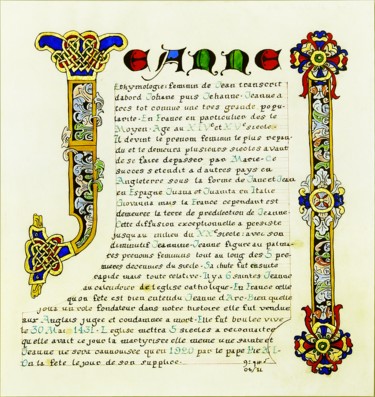 JEANNE
Ethymologie feminin de Jean transcrit
dabord Johane puis Jehanne Jeanne a
tres tot connue une tres grande popu
larite En France en particulier des le
Moyen Age au XIVe et XVe siecles
Il devint le prenom feminin le plus repan
du et le demeura plusieurs siecles avant
de se faire depasser par Marie Ce
succes s etendit a d'autres pays en
Angleterre sous la forme de Janet Jean
en Espagne Juana et Juanita en Italie
Giovanna mais la France cependant est
demeuree la terre de predilection de Jeanne
Cette diffusion exceptionnelle a persiste
jusquau milieu du XXe siecle avec son
diminutif Jeannine Jeanne figure au palma
res prenoms feminins tout au long des 5 pre
mieres decennies du siecle Sa chute fut ensuite
rapide mais toute relative Il y a 6 saintes Jeanne
au calendrier de l eglise catholique En France celle
qu on fete est bien entendu Jeanne d Arc Bien quelle
joua un role fondateur dans notre histoire elle fut vendue
aux Anglais jugee et condamnee a mort Elle fut brulee vive
le 30 Mai 1431 L eglise mettra 5 siecles a reconnaitre
qu elle avait ce jour la martyrisee elle meme une sainte et
Jeanne ne sera cannonisee qu en 1920 par le pape
On la fete le jour de son supplice